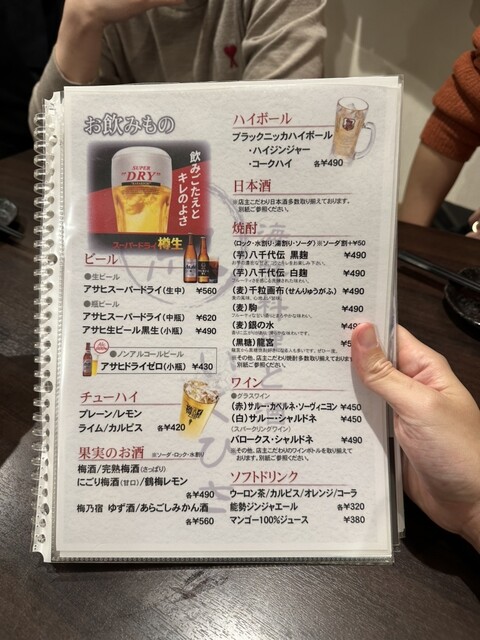 お飲みもの
SUPER
"DRY"
飲みごたえと
キレのよさ
スーパードライ 樽生
ビール
●生ビール
アサヒスーパードライ(生中) ¥560
●瓶ビール
アサヒスーパードライ(中瓶) ¥620
アサヒ生ビール黒生(小瓶) ¥490
●ノンアルコールビール
アサヒドライゼロ(小瓶) ¥430
チューハイ
プレーン/レモン
ライム/カルピス 各¥420
果実のお酒 ※ソーダ・ロック・水割り
梅酒/完熟梅酒(さっぱり)
にごり梅酒(甘口)/鶴梅レモン
各¥490
梅乃宿 ゆず酒/あらごしみかん酒
各¥560
ハイボール
ブラックニッカハイボール
・ハイジンジャー
・コークハイ 各¥490
日本酒
※店主こだわり日本酒多数取り揃えております。
別紙ご参照ください。
焼酎
(ロック・水割り・湯割り・ソーダ) ※ソーダ割+¥50
(芋)八千代伝 黒麹 ¥490
(芋)八千代伝 白麹 ¥490
(麦)千粒画布(せんりゅうがふ) ¥490
(麦)駒 ¥490
(麦)銀の水 ¥49
(黒糖)龍宮 ¥5
※その他、店主こだわり焼酎多数取り揃えております。
別紙ご参照ください。
ワイン
●グラスワイン
(赤)サルー・カベルネ・ソーヴィニヨン ¥450
(白)サルー・シャルドネ ¥450
(スパークリングワイン)
バロークス・シャルドネ ¥490
※その他、店主こだわりのワインボトルを取り揃えて
おります。別紙ご参照ください。
ソフトドリンク
ウーロン茶/カルピス/オレンジ/コーラ
能勢ジンジャエール 各¥320
マンゴー100%ジュース ¥380